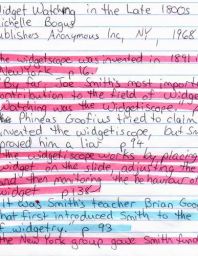 Widget Watching in the Late 1800s
Michelle Bogus
Publishers Anonymous Inc, NY, 1968
The widgetscope was invented in 1891
New York p 16
By far, Joe Smith's most import
contribution to the field of widge
watching was the Widgetiscope."
Phineas Goofius tried to claim
invented the widgetiscope, but Sm
proved him a liar p 94
the widgetiscope works by placing
widget on the slide, adjusting the
and then monitoring the behaviour of
widget p 138
It was Smith's teacher Brian Goo
that first introduced Smith to the
of widgetry." p 93
the New York group gave Smith fund